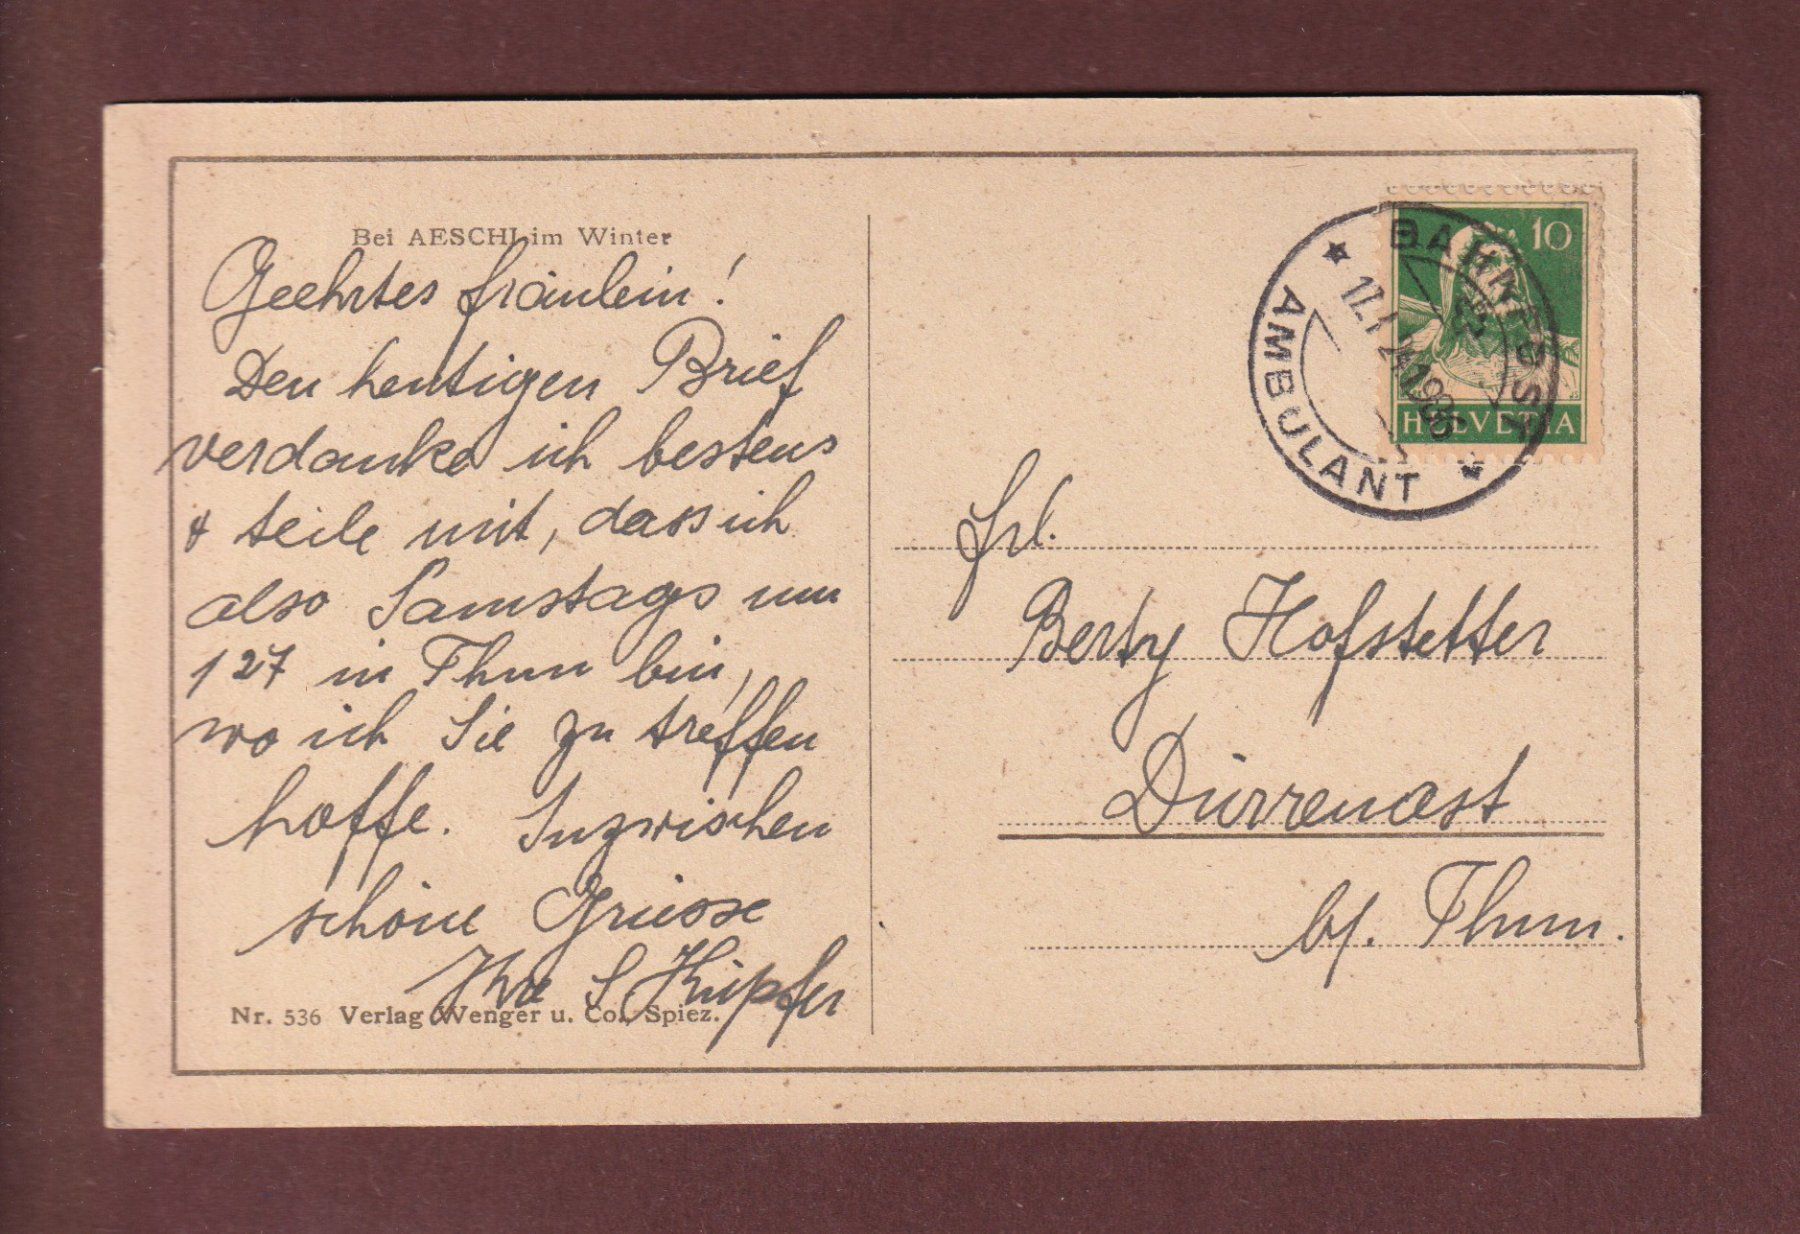 Bei AESCHI im Winter
Geehrtes Fräulein!
Den heutigen Brief
verdanke ich bestens
& teile mit, dass ich
also Samstags um
127 in Thun bin,
wo ich Sie zu treffen
hoffe. Inzwischen
schöne Grüsse
Ihre S Küpfer
Nr. 536 Verlag Wenger u. Co., Spiez.
10
HELVETIA
BAHNPOST
AMBULANT
Frl.
Berty Hofstetter
Dürrenast
b/. Thun.